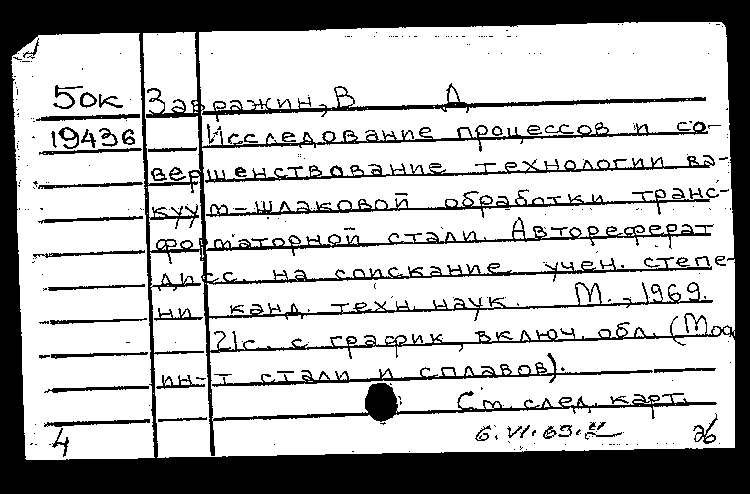 50к Завражин, В Д
19436 Исследование процессов и со-
вершенствование технологии ва-
куум-шлаковой обработки транс-
форматорной стали. Автореферат
дисс. на соискание учен. степе-
ни канд. техн. наук. М., 1969.
21с. с график, включ. обл. (Моск
ин-т стали и сплавов).
См. след. карт.
4 6.VI.69.